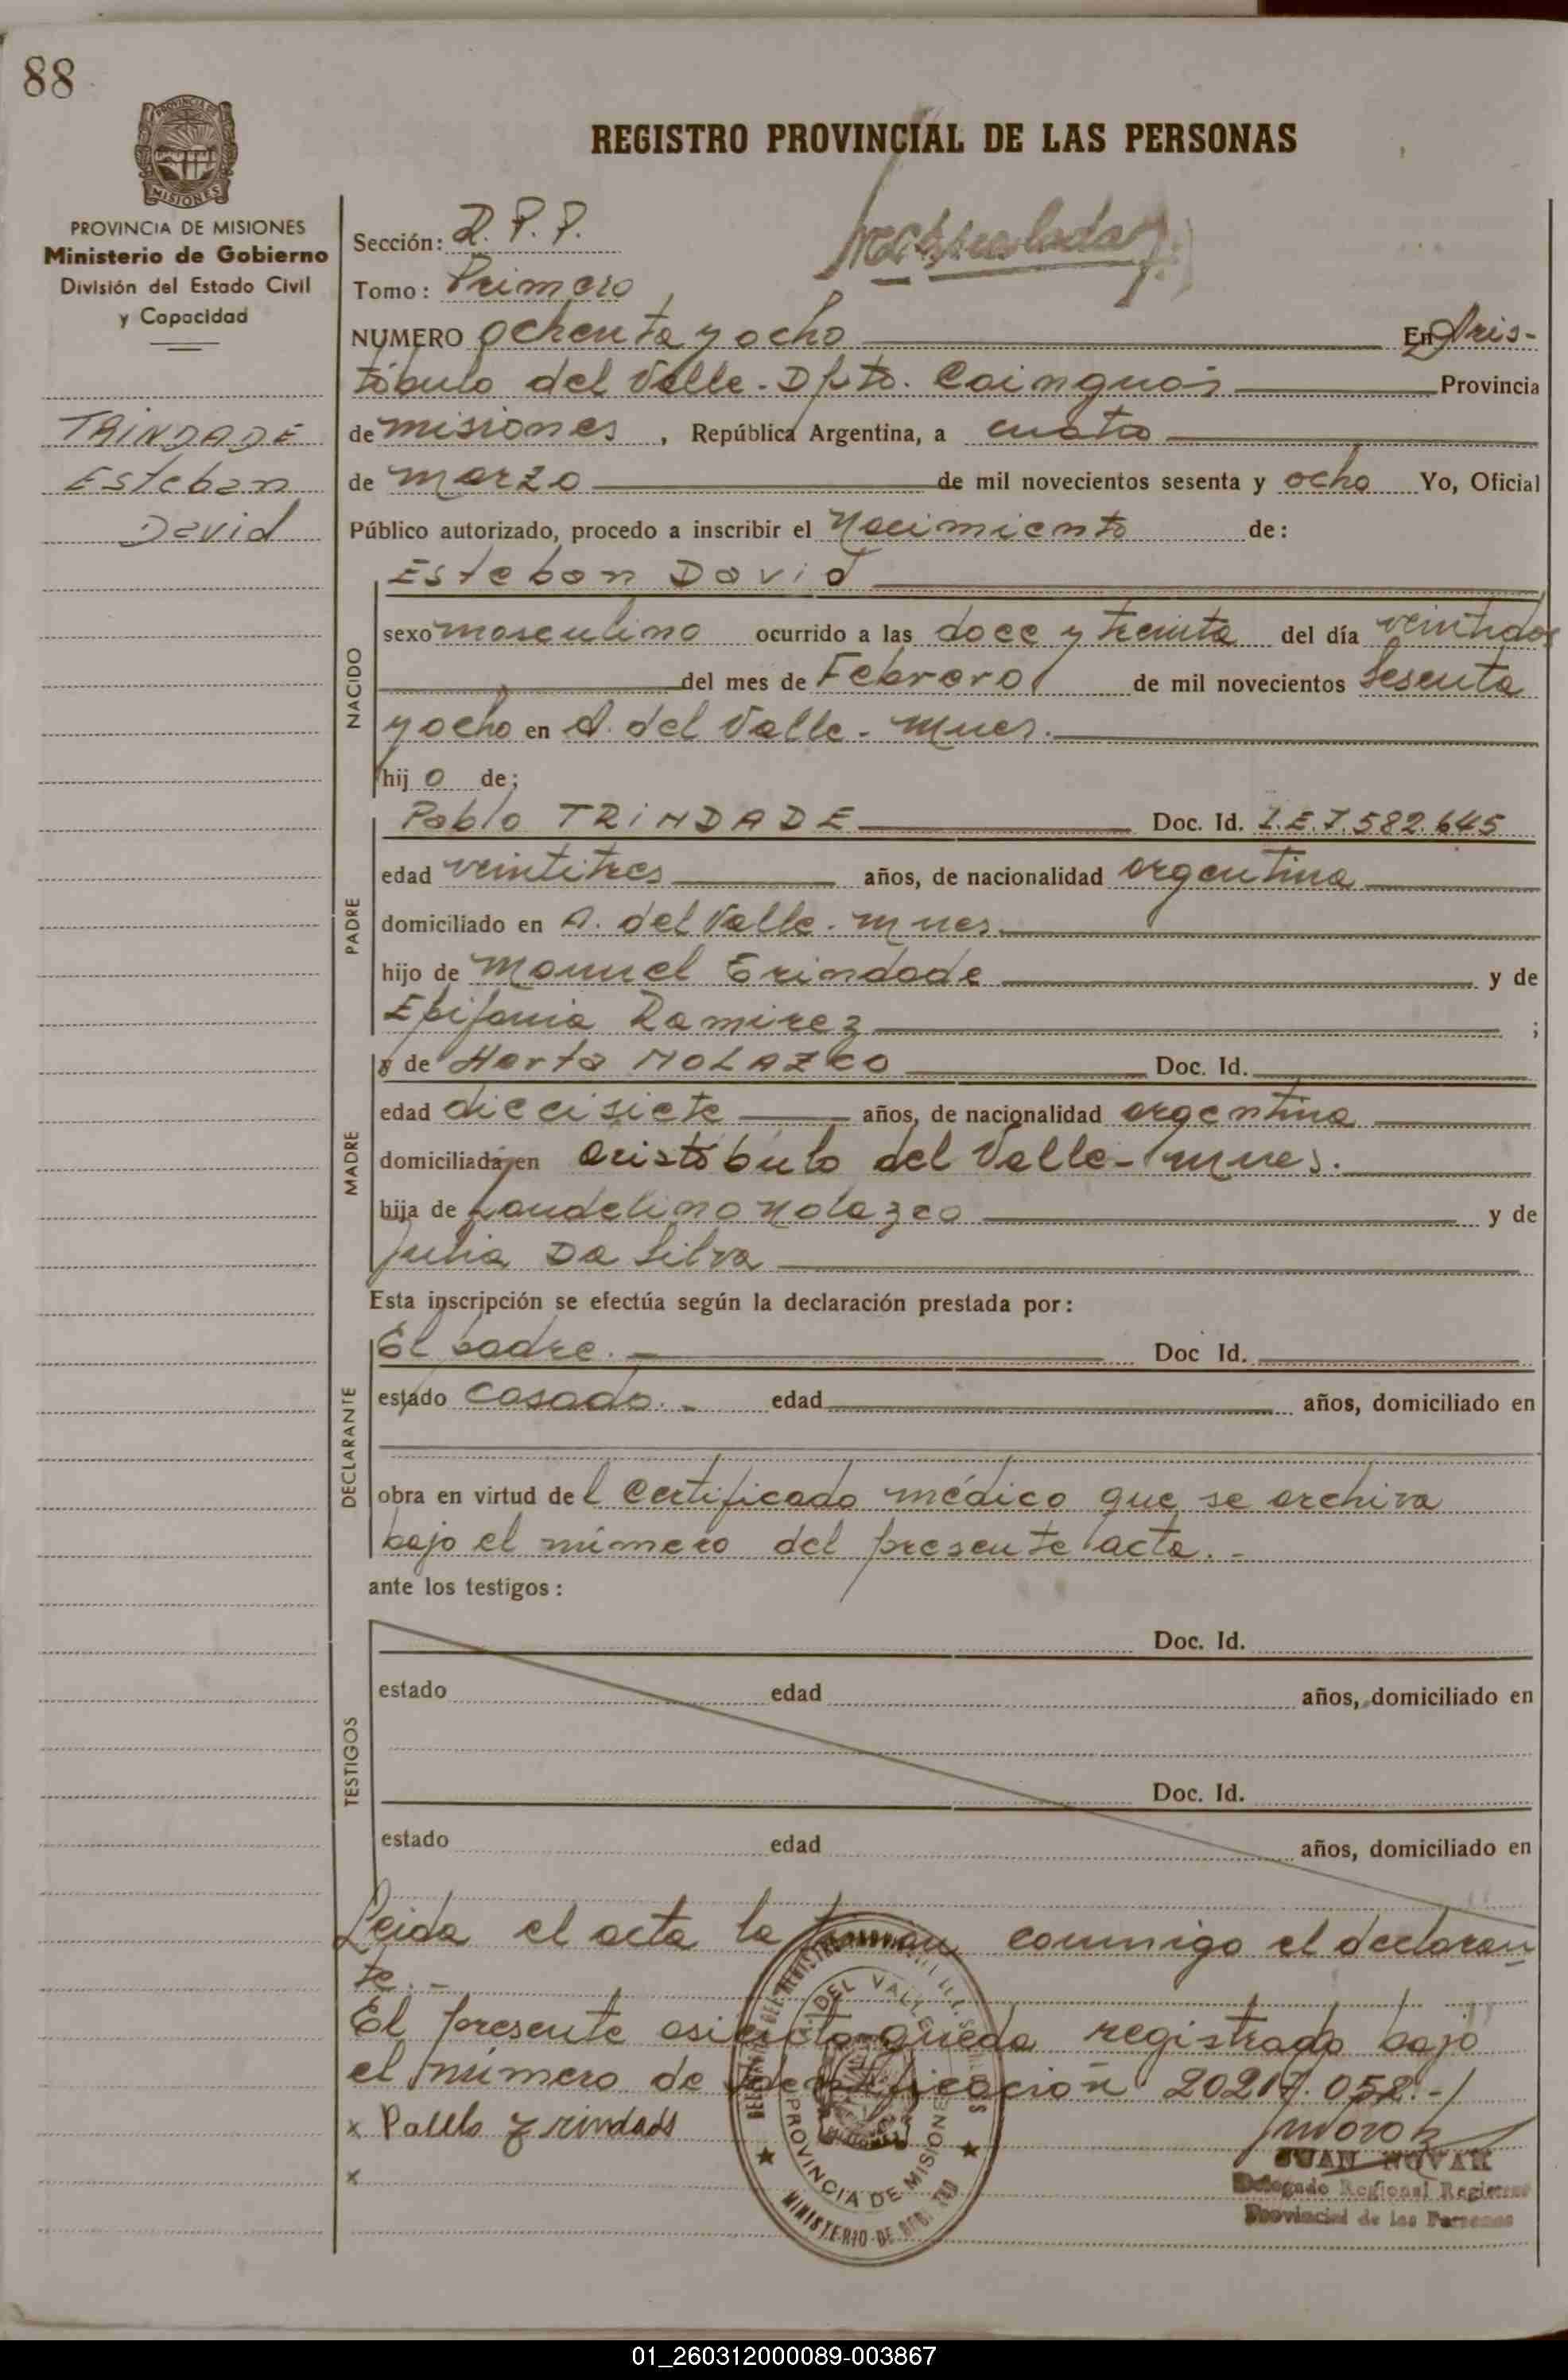 88
PROVINCIA DE MISIONES
Ministerio de Gobierno
División del Estado Civil
y Capacidad
TRINDADE
Esteban
David
REGISTRO PROVINCIAL DE LAS PERSONAS
Sección: R. P. P.
Tomo: Primero
NUMERO ochenta y ocho En Aris-
tóbulo del Valle - Dpto. Cainguás Provincia
de misiones, República Argentina, a cuatro
de marzo de mil novecientos sesenta y ocho Yo, Oficial
Público autorizado, procedo a inscribir el Nacimiento de:
NACIDO
Esteban David
sexo masculino ocurrido a las doce y treinta del día veintidos
del mes de Febrero de mil novecientos sesenta
y ocho en A. del Valle - Mnes.
hijo de;
PADRE
Pablo TRINDADE Doc. Id. L.E. 7.582.645
edad veintitres años, de nacionalidad argentina
domiciliado en A. del Valle - Mnes.
hijo de Manuel Trindade y de
Epifania Ramirez ;
MADRE
y de Marta NOLAZCO Doc. Id.
edad diecisiete años, de nacionalidad argentina
domiciliada en Aristóbulo del Valle - Mnes.
hija de Laudelino Nolazco y de
Julia Da Silva
Esta inscripción se efectúa según la declaración prestada por:
DECLARANTE
El padre. - Doc Id.
estado Casado. - edad años, domiciliado en
obra en virtud del certificado médico que se archiva
bajo el número del presente acta. -
ante los testigos:
TESTIGOS
Doc. Id.
estado edad años, domiciliado en
Doc. Id.
estado edad años, domiciliado en
Leida el acta la firman conmigo el declaran
te. -
El presente asiento queda registrado bajo
el número de identificación 20217.058. -
x Pablo Trindade
x
A. DEL VALLE
PROVINCIA DE MISIONES
JUAN NOVAK
Delegado Regional Registro
Provincial de las Personas
01_260312000089-003867